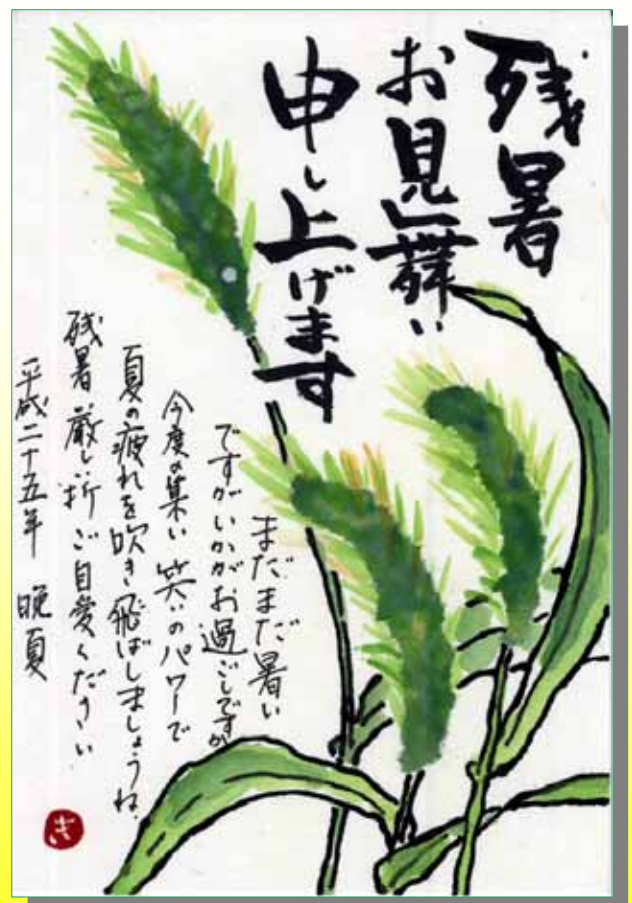 残暑
お見舞い
申し上げます
まだまだ暑い
ですがいかがお過ごしですか
今度の集い 笑いのパワーで
夏の疲れを吹き飛ばしましょうね.
残暑厳し折ご自愛ください
平成二十五年 晩夏
き